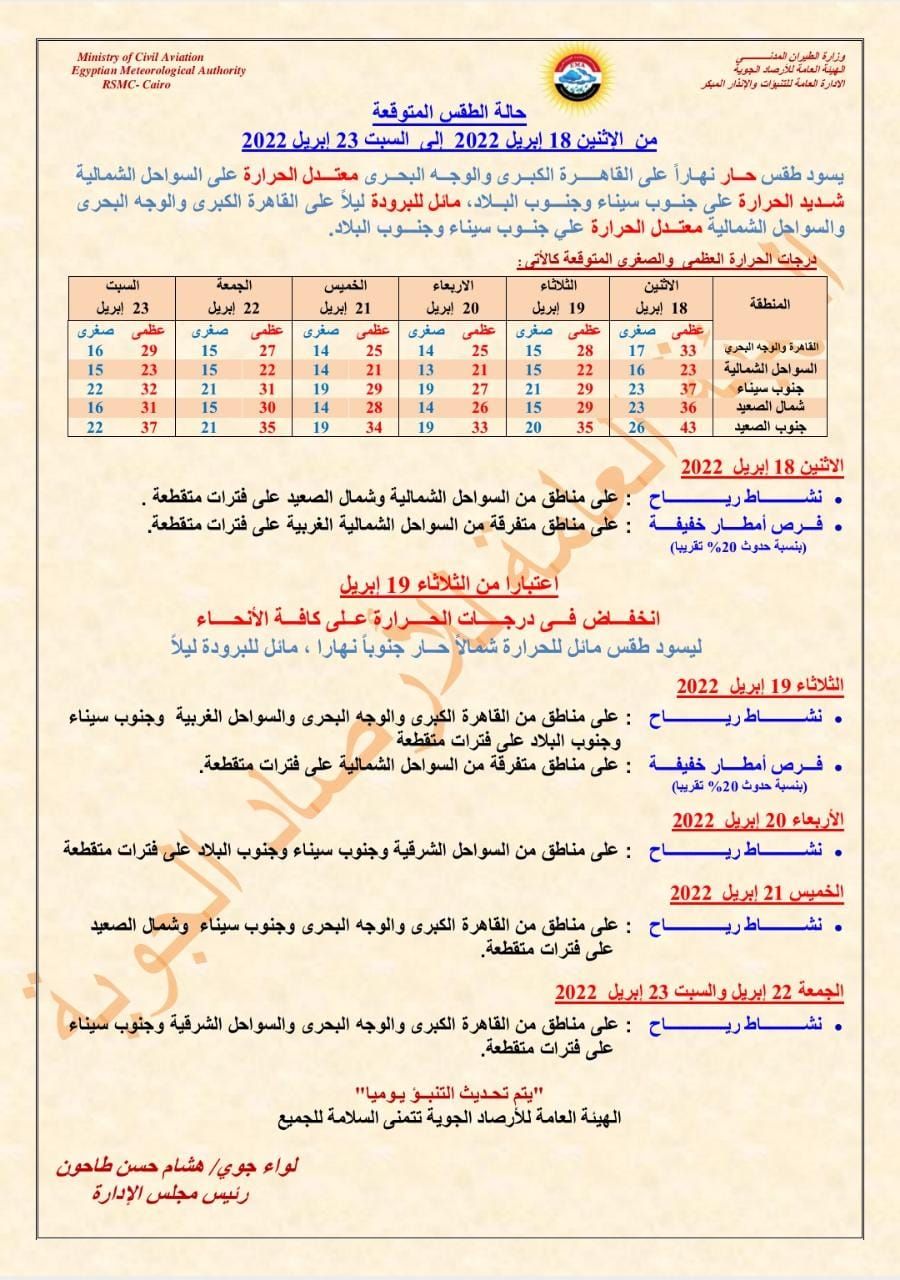 Ministry of Civil Aviation
Egyptian Meteorological Authority
RSMC- Cairo
وزارة الطيران المدني
الهيئة العامة للأرصاد الجوية
الادارة العامة للتنبؤات والإنذار المبكر
EMA
حالة الطقس المتوقعة
من الاثنين 18 إبريل 2022 إلى السبت 23 إبريل 2022
يسود طقس حار نهاراً على القاهرة الكبرى والوجه البحرى معتدل الحرارة على السواحل الشمالية
شديد الحرارة على جنوب سيناء وجنوب البلاد، مائل للبرودة ليلاً على القاهرة الكبرى والوجه البحرى
والسواحل الشمالية معتدل الحرارة علي جنوب سيناء وجنوب البلاد.
درجات الحرارة العظمى والصغرى المتوقعة كالأتى:
المنطقة الاثنين الثلاثاء الاربعاء الخميس الجمعة السبت
18 إبريل 19 إبريل 20 إبريل 21 إبريل 22 إبريل 23 إبريل
عظمى صغرى عظمى صغرى عظمى صغرى عظمى صغرى عظمى صغرى عظمى صغرى
القاهرة والوجه البحري 33 17 28 15 25 14 25 14 27 15 29 16
السواحل الشمالية 23 16 22 15 21 13 21 14 22 15 23 15
جنوب سيناء 37 23 29 21 27 19 29 19 31 21 32 22
شمال الصعيد 36 23 29 15 26 14 28 14 30 15 31 16
جنوب الصعيد 43 26 35 20 33 19 34 19 35 21 37 22
الاثنين 18 إبريل 2022
• نشاط رياح : على مناطق من السواحل الشمالية وشمال الصعيد على فترات متقطعة .
• فرص أمطار خفيفة : على مناطق متفرقة من السواحل الشمالية الغربية على فترات متقطعة.
(بنسبة حدوث 20% تقريبا)
اعتبارا من الثلاثاء 19 إبريل
انخفاض فى درجات الحرارة على كافة الأنحاء
ليسود طقس مائل للحرارة شمالاً حار جنوباً نهارا ، مائل للبرودة ليلاً
الثلاثاء 19 إبريل 2022
• نشاط رياح : على مناطق من القاهرة الكبرى والوجه البحرى والسواحل الغربية وجنوب سيناء
وجنوب البلاد على فترات متقطعة
• فرص أمطار خفيفة : على مناطق متفرقة من السواحل الشمالية على فترات متقطعة.
(بنسبة حدوث 20% تقريبا)
الأربعاء 20 إبريل 2022
• نشاط رياح : على مناطق من السواحل الشرقية وجنوب سيناء وجنوب البلاد على فترات متقطعة
الخميس 21 إبريل 2022
• نشاط رياح : على مناطق من القاهرة الكبرى والوجه البحرى وجنوب سيناء وشمال الصعيد
على فترات متقطعة.
الجمعة 22 إبريل والسبت 23 إبريل 2022
• نشاط رياح : على مناطق من القاهرة الكبرى والوجه البحرى والسواحل الشرقية وجنوب سيناء
على فترات متقطعة.
"يتم تحديث التنبؤ يوميا"
الهيئة العامة للأرصاد الجوية تتمنى السلامة للجميع
لواء جوي/ هشام حسن طاحون
رئيس مجلس الإدارة
الهيئة العامة للأرصاد الجوية